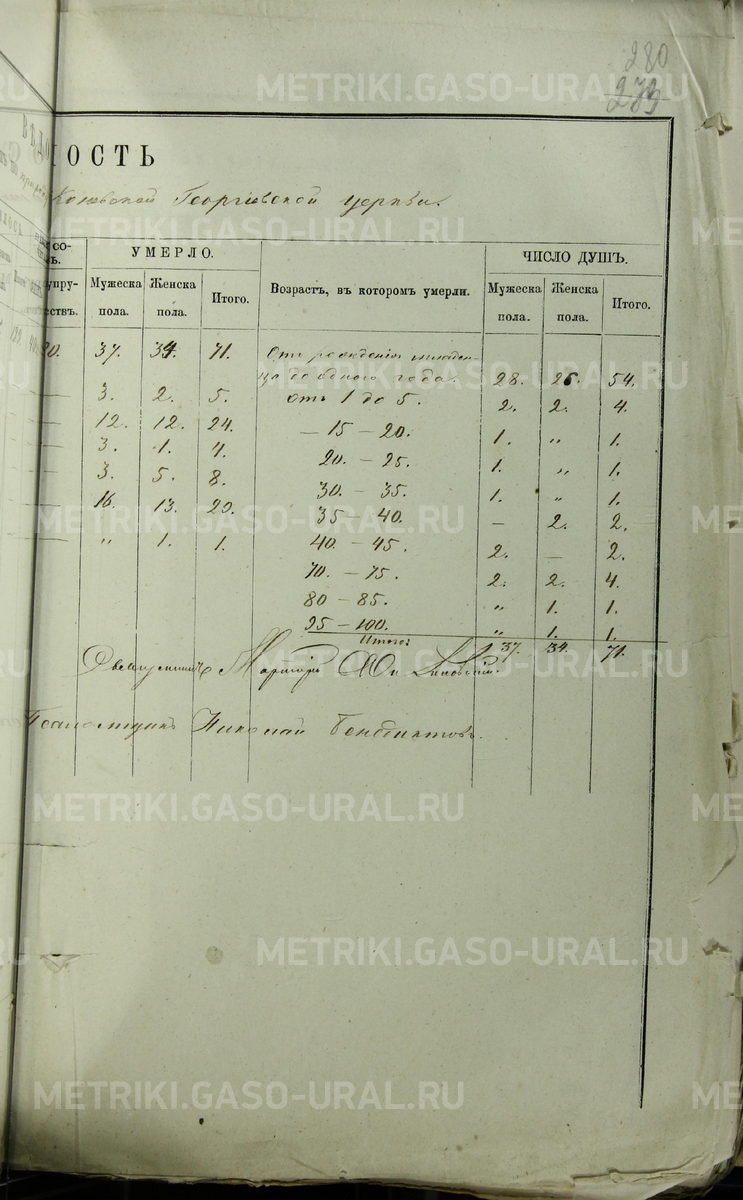 280
273
ОСТЬ
Коневской Георгіевской церкви.
СО-
Ъ.
УМЕРЛО.
ЧИСЛО ДУШЪ.
упру-
ствъ.
Мужеска пола.
Женска пола.
Итого.
Возрастъ, въ которомъ умерли.
Мужеска пола.
Женска пола.
Итого.
20. 37. 34. 71. Отъ рожденія младен-
ца до одного года. 28. 26. 54.
— 3. 2. 5. отъ 1 до 5. 2. 2. 4.
— 12. 12. 24. — 15 — 20. 1. „ 1.
— 3. 1. 4. 20. — 25. 1. „ 1.
— 3. 5. 8. 30. — 35. 1. „ 1.
— 16. 13. 29. 35 — 40. — 2. 2.
— „ 1. 1. 40. — 45. 2. — 2.
70. — 75. 2. 2. 4.
80 — 85. „ 1. 1.
95 — 100. „ 1. 1.
Итого: 37. 34. 71.
Николай
METRIKI.GASO-URAL.RU
METRIKI.GASO-URAL.RU
METRIKI.GASO-URAL.RU
METRIKI.GASO-URAL.RU
METRIKI.GASO-URAL.RU
METRIKI.GASO-URAL.RU
METRIKI.GASO-URAL.RU